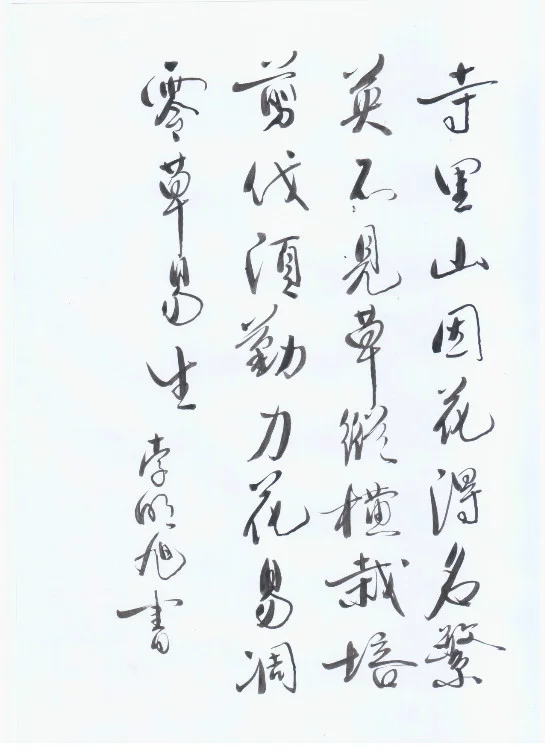 寺里山因花得名繁
英不見草縱橫栽培
剪伐須勤力花易凋
零草易生 李明旭書